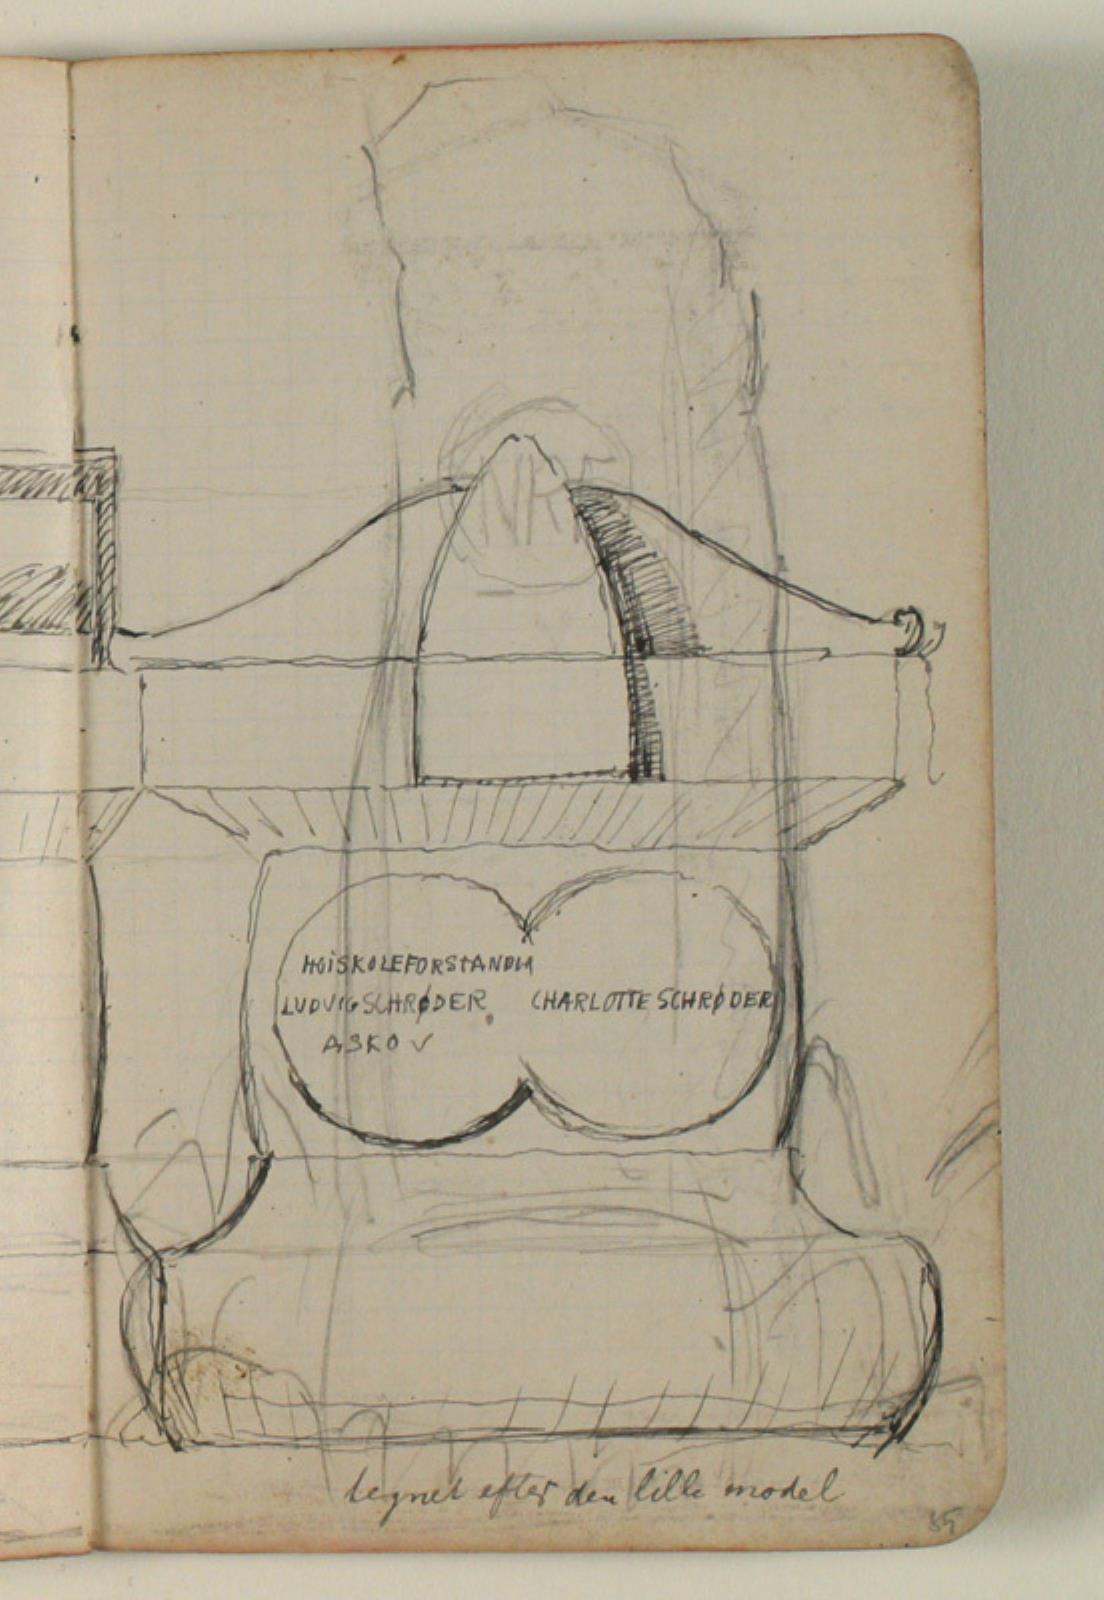 HØISKOLEFORSTANDER
LUDVIG SCHRØDER CHARLOTTE SCHRØDER
ASKOV
tegnet efter den lille model